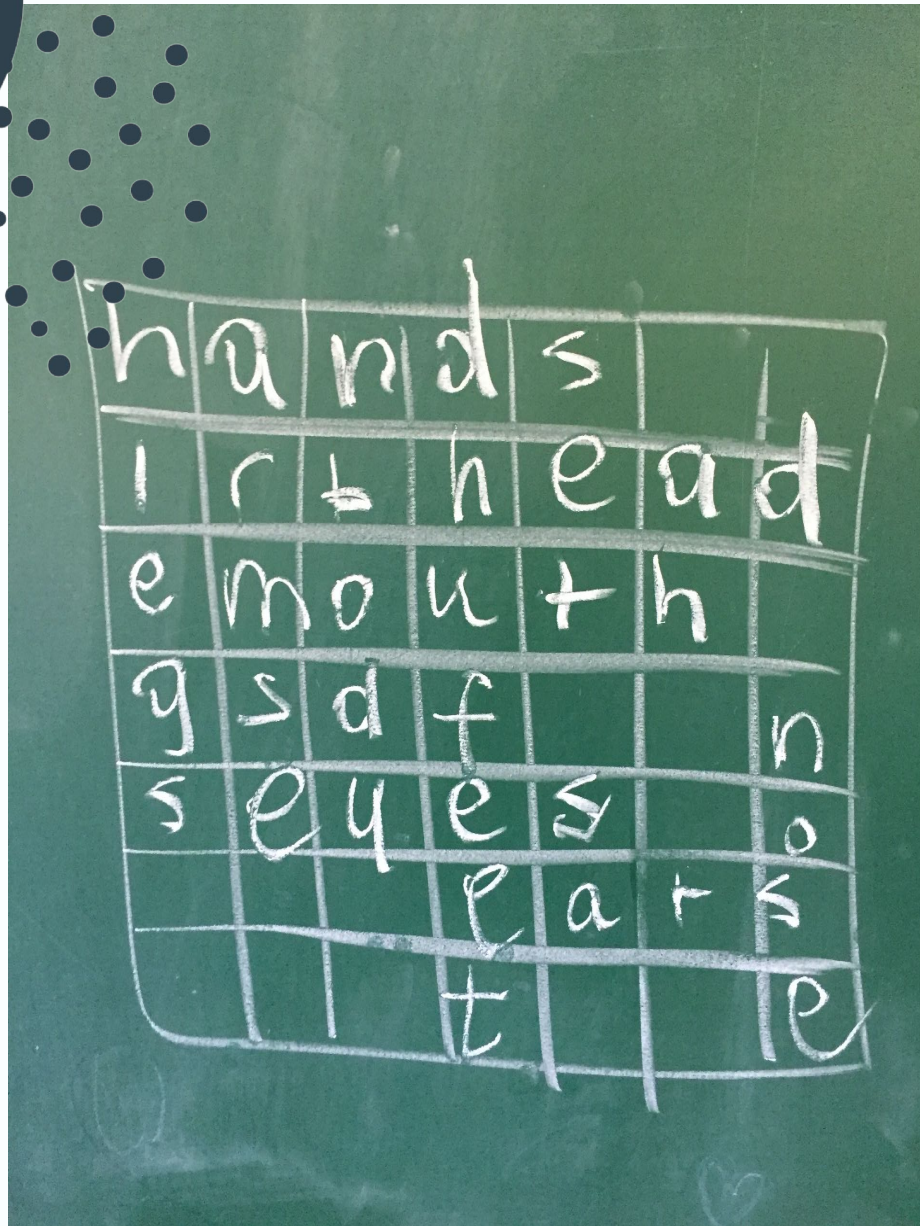 h a n d s
l r t h e a d
e m o u t h
g s d f n
s e y e s o
e a r s
t e